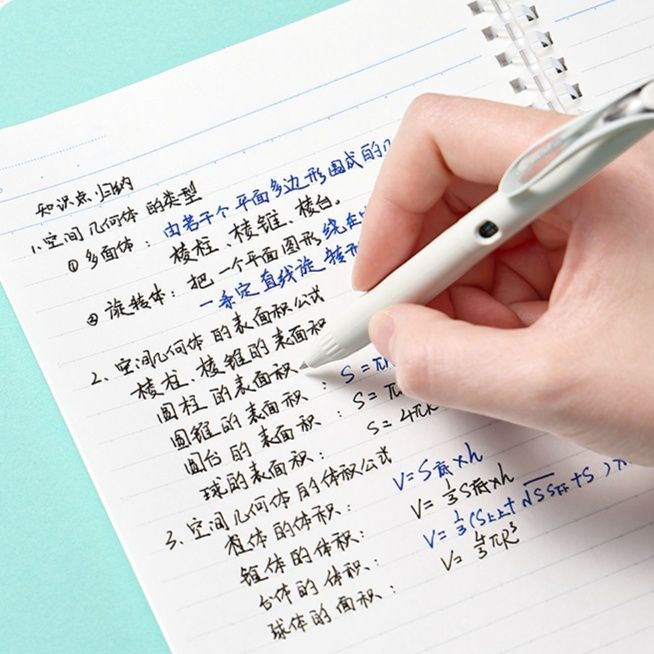 知识点归纳
1.空间几何体的类型
①多面体：由若干个平面多边形围成的几
棱柱、棱锥、棱台。
②旋转体：把一个平面图形绕在
一条定直线旋转形
2、空间几何体的表面积公式
棱柱、棱锥的表面积
圆柱的表面积：S=π
圆锥的表面积：S=π
圆台的表面积：S=4πR
球的表面积：
3、空间几何体的体积公式
柱体的体积：V=S底×h
锥体的体积：V=1/3S底×h
台体的体积：V=1/3(S上+√SS下+S)×
球体的面积：V=4/3πR³